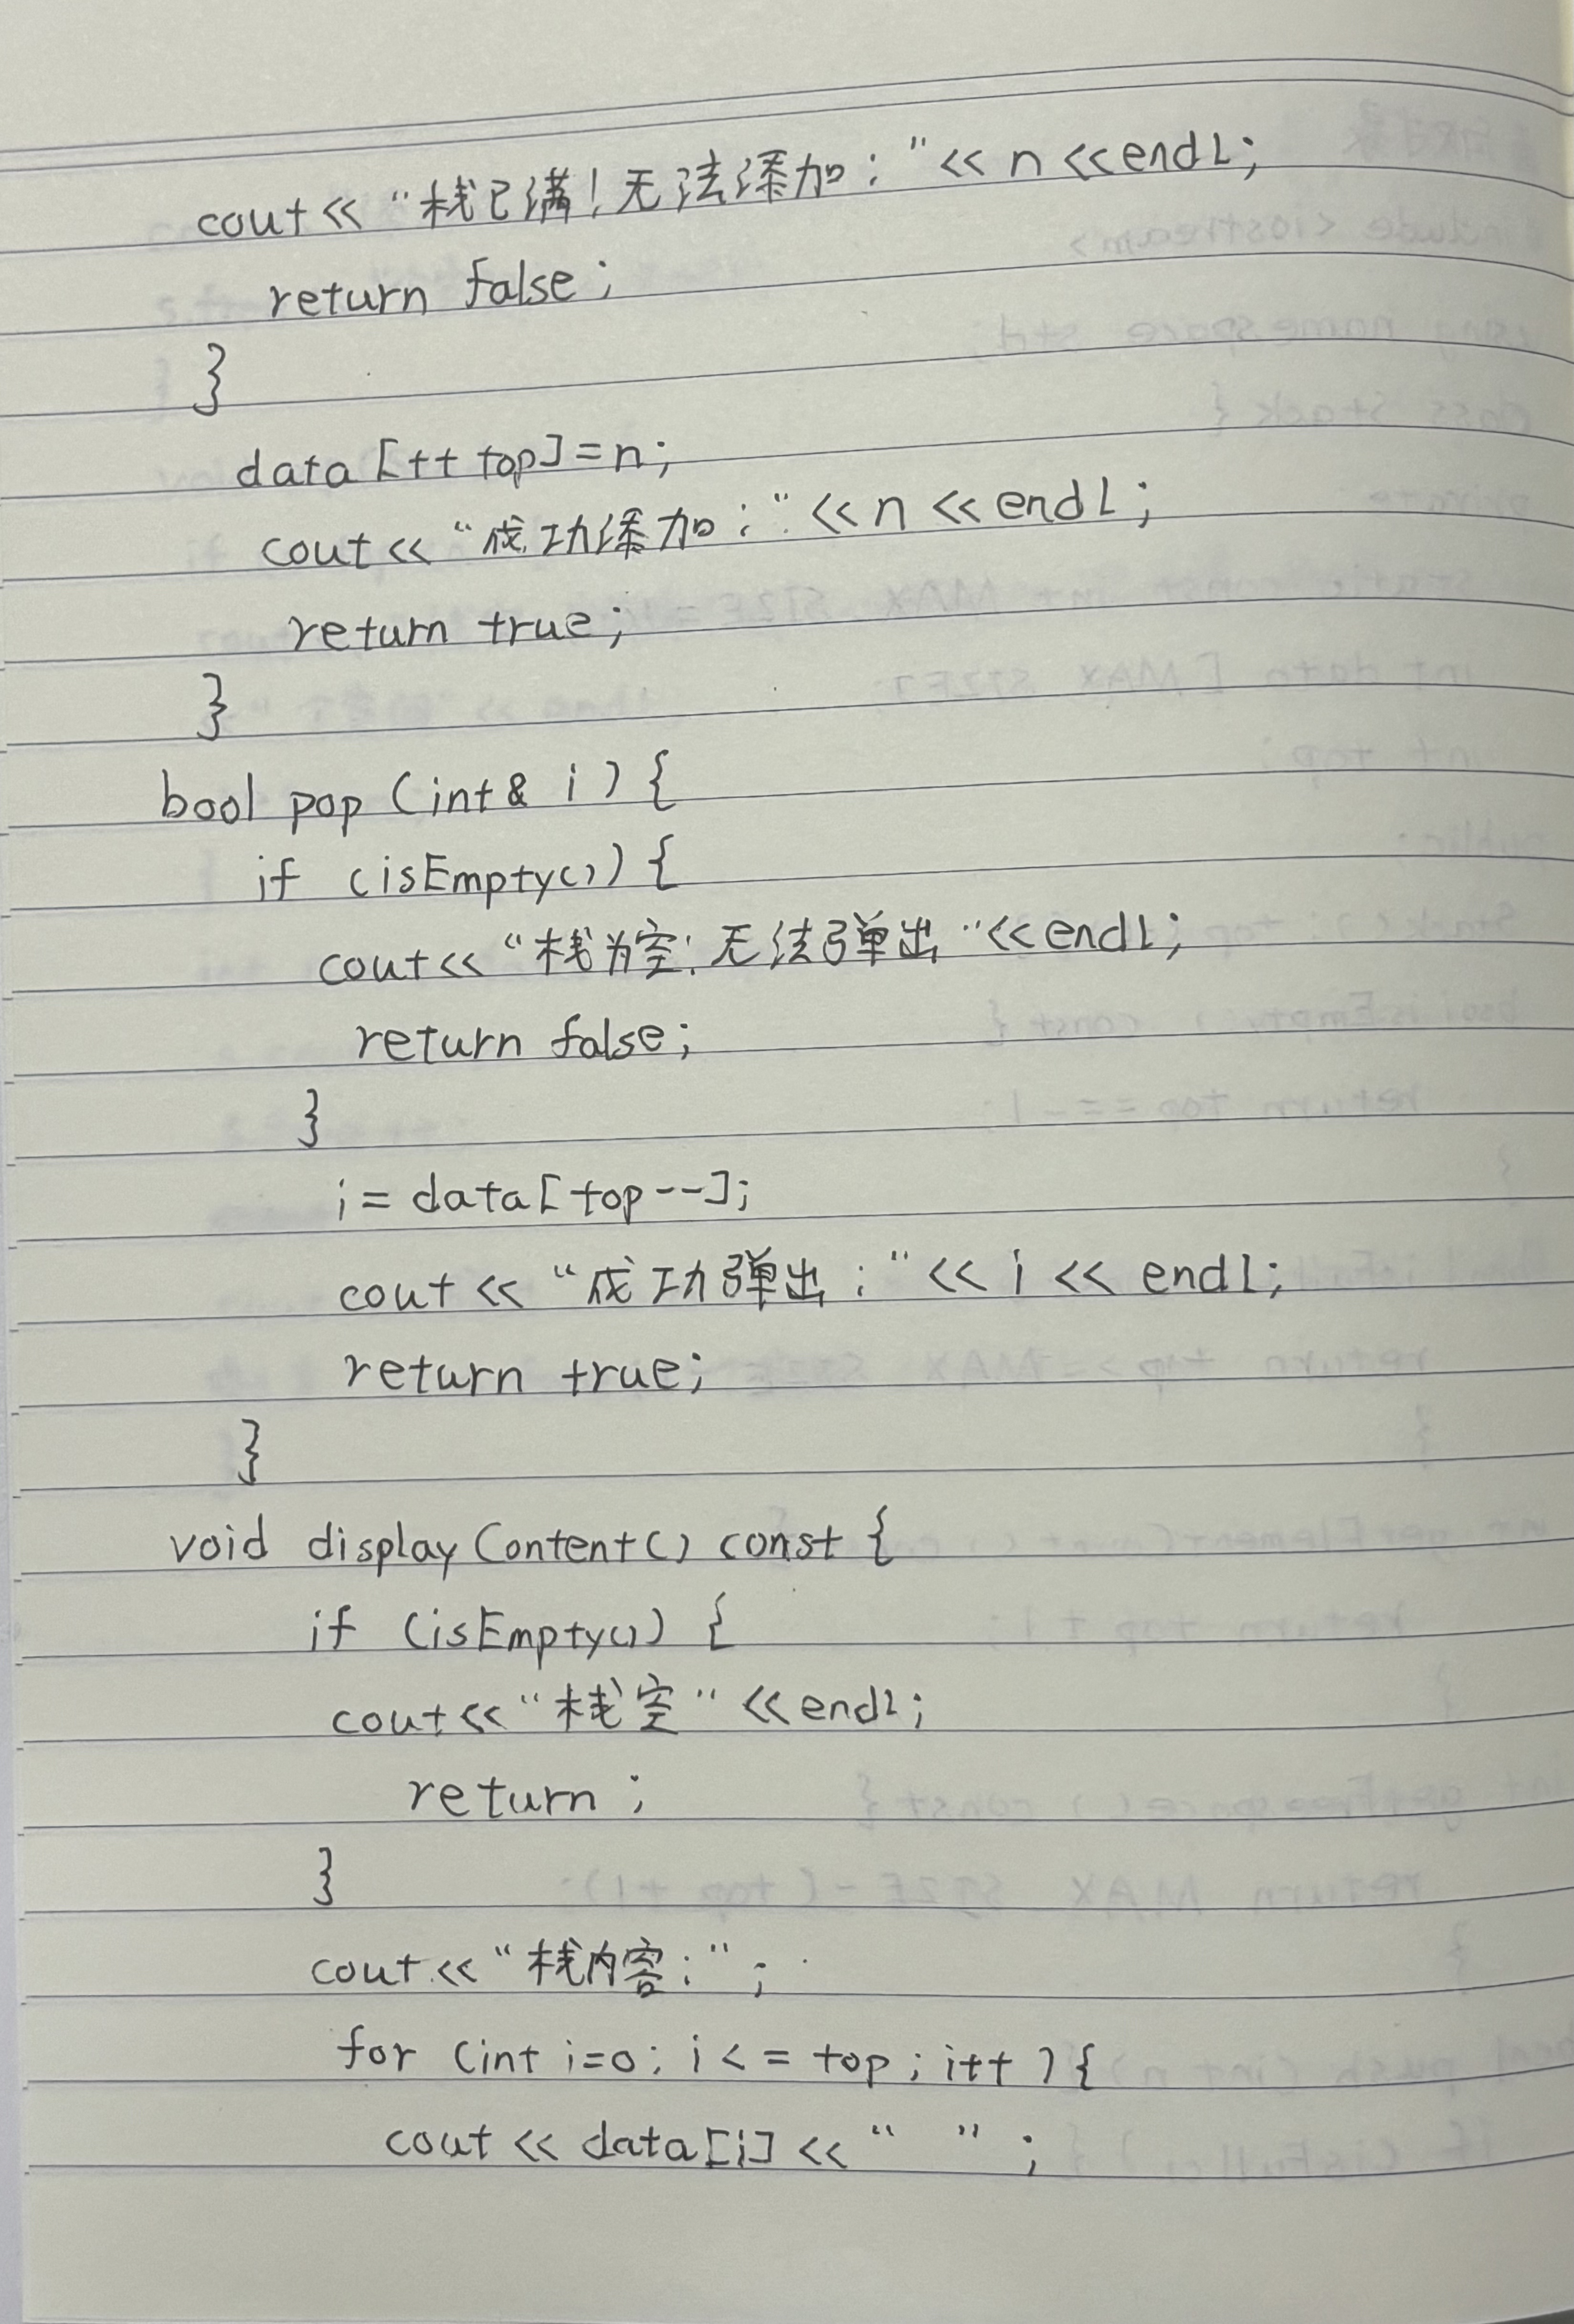 cout << "栈已满！无法添加：" << n << endl;
return false;
}
data [++top] = n;
cout << "成功添加：" << n << endl;
return true;
}
bool pop (int& i) {
if (isEmpty()) {
cout << "栈为空！无法弹出" << endl;
return false;
}
i = data [top--];
cout << "成功弹出：" << i << endl;
return true;
}
void displayContent() const {
if (isEmpty()) {
cout << "栈空" << endl;
return ;
}
cout << "栈内容：" ;
for (int i=0; i <= top; i++) {
cout << data[i] << " " ;